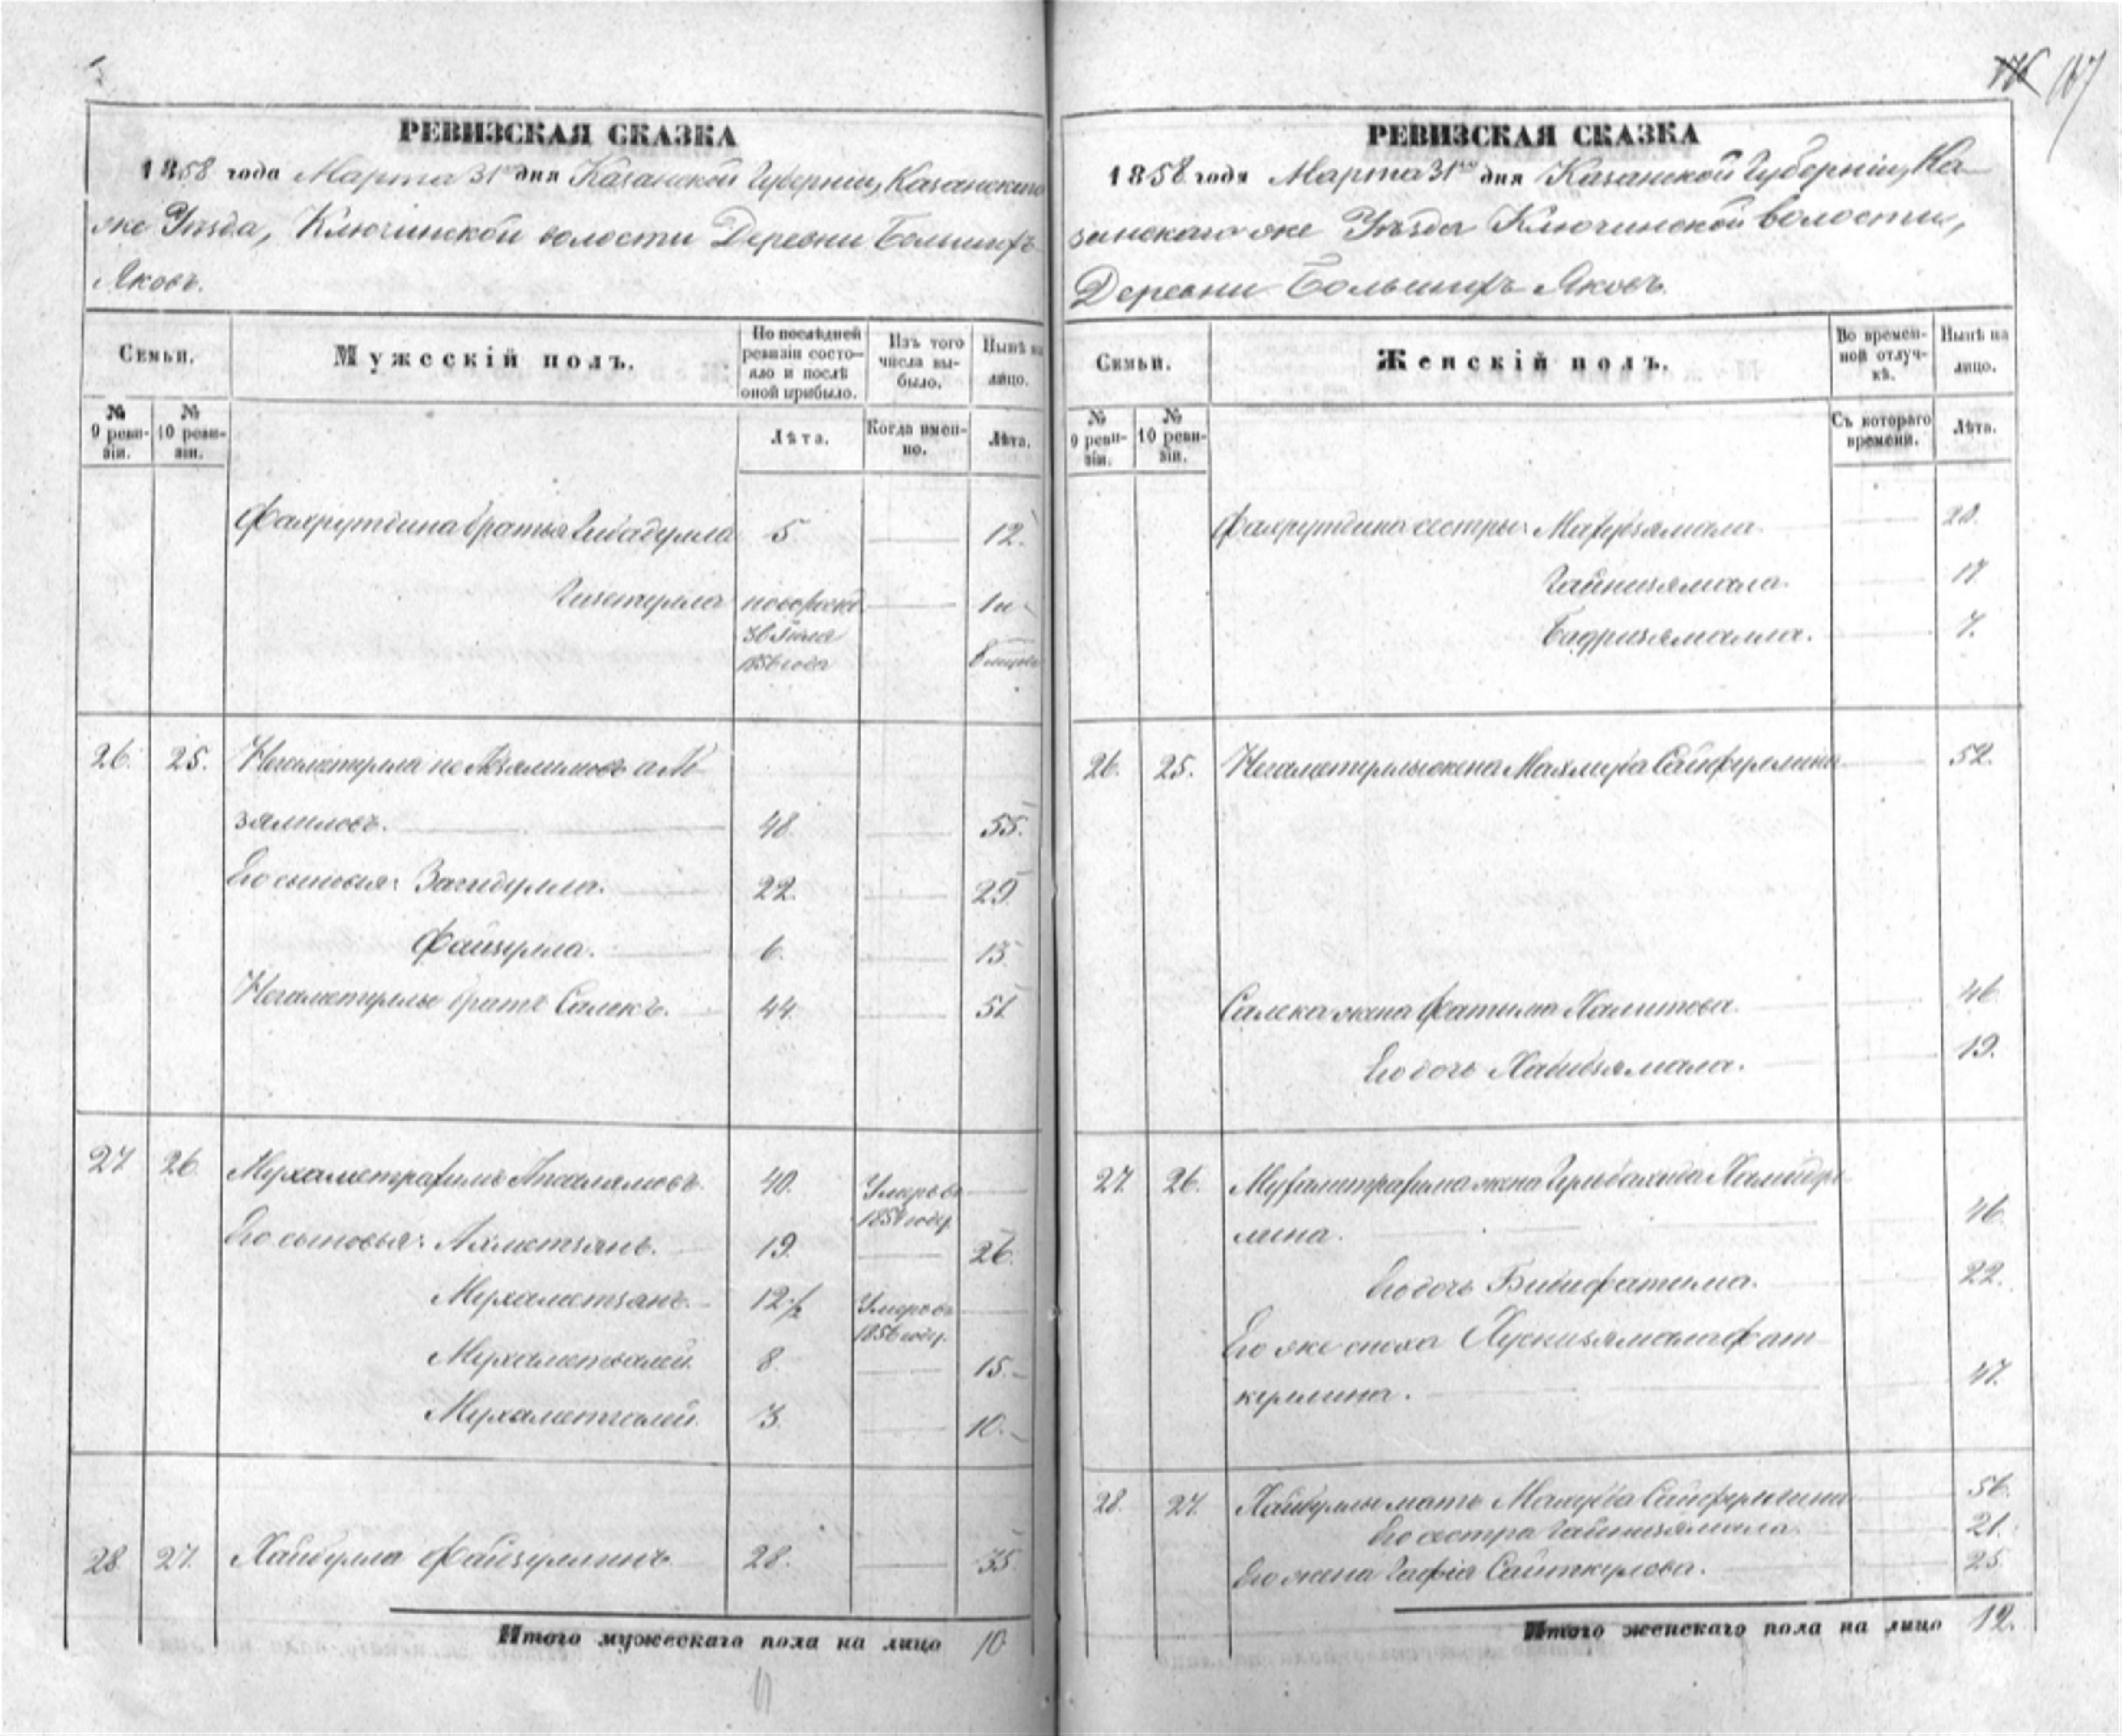 167
РЕВИЗСКАЯ СКАЗКА
1858 года Марта 31го дня Казанской Губерніи, Казанскаго
же Уѣзда, Ключинской волости Деревни Большихъ
Яковъ.
Семьи.
Мужескій полъ.
По послѣдней ревизіи состояло и послѣ оной прибыло.
Изъ того числа выбыло.
Нынѣ на лицо.
№ 9 ревизіи.
№ 10 ревизіи.
Лѣта.
Когда именно.
Лѣта.
Фахрутдина братья Гибадулла 5 12.
новорожд.
1856 года
26. 25.
зялиловъ. 48 55.
Его сыновья: Загидулла. 22. 29
Файзулла. 6. 13.
братъ Салекъ. 44. 51
27 26 Мухаметрахимъ 40. Умеръ въ
185 году.
Его сыновья: Ахметзянъ. 19. 26.
Мухаметзянъ. 12½ Умеръ въ
1856 году.
Мухаметвалей. 8. 15.
Мухаметгалей. 3. 10.
28. 27. Хайбулла Файзуллинъ 28. 35
Итого мужескаго пола на лицо 10
РЕВИЗСКАЯ СКАЗКА
1858 года Марта 31го дня Казанской Губерніи, Ка-
занскаго же Уѣзда Ключинской волости,
Деревни Большихъ Яковъ.
Семьи.
Женскій полъ.
Во временной отлучкѣ.
Нынѣ на лицо.
№ 9 ревизіи.
№ 10 ревизіи.
Съ котораго времени.
Лѣта.
Фахрутдина сестры: 20.
Гайнизямала. 17
Бадризямалла. 7.
26. 25. жена Сайфуллина 52.
Салека жена Фатима Хамитова 46
Его дочь Хабибзямала. 19.
27. 26. Мухаметрахима жена Хамидул-
лина. 46
Его дочь Бибифатима. 22.
Его же сноха Фат-
куллина. 47.
28. 27. Хайбуллы мать Сайфуллина 56.
Его сестра Гайнизямала. 21.
Его жена Гафія Сайткулова. 25
Итого женскаго пола на лицо 12.